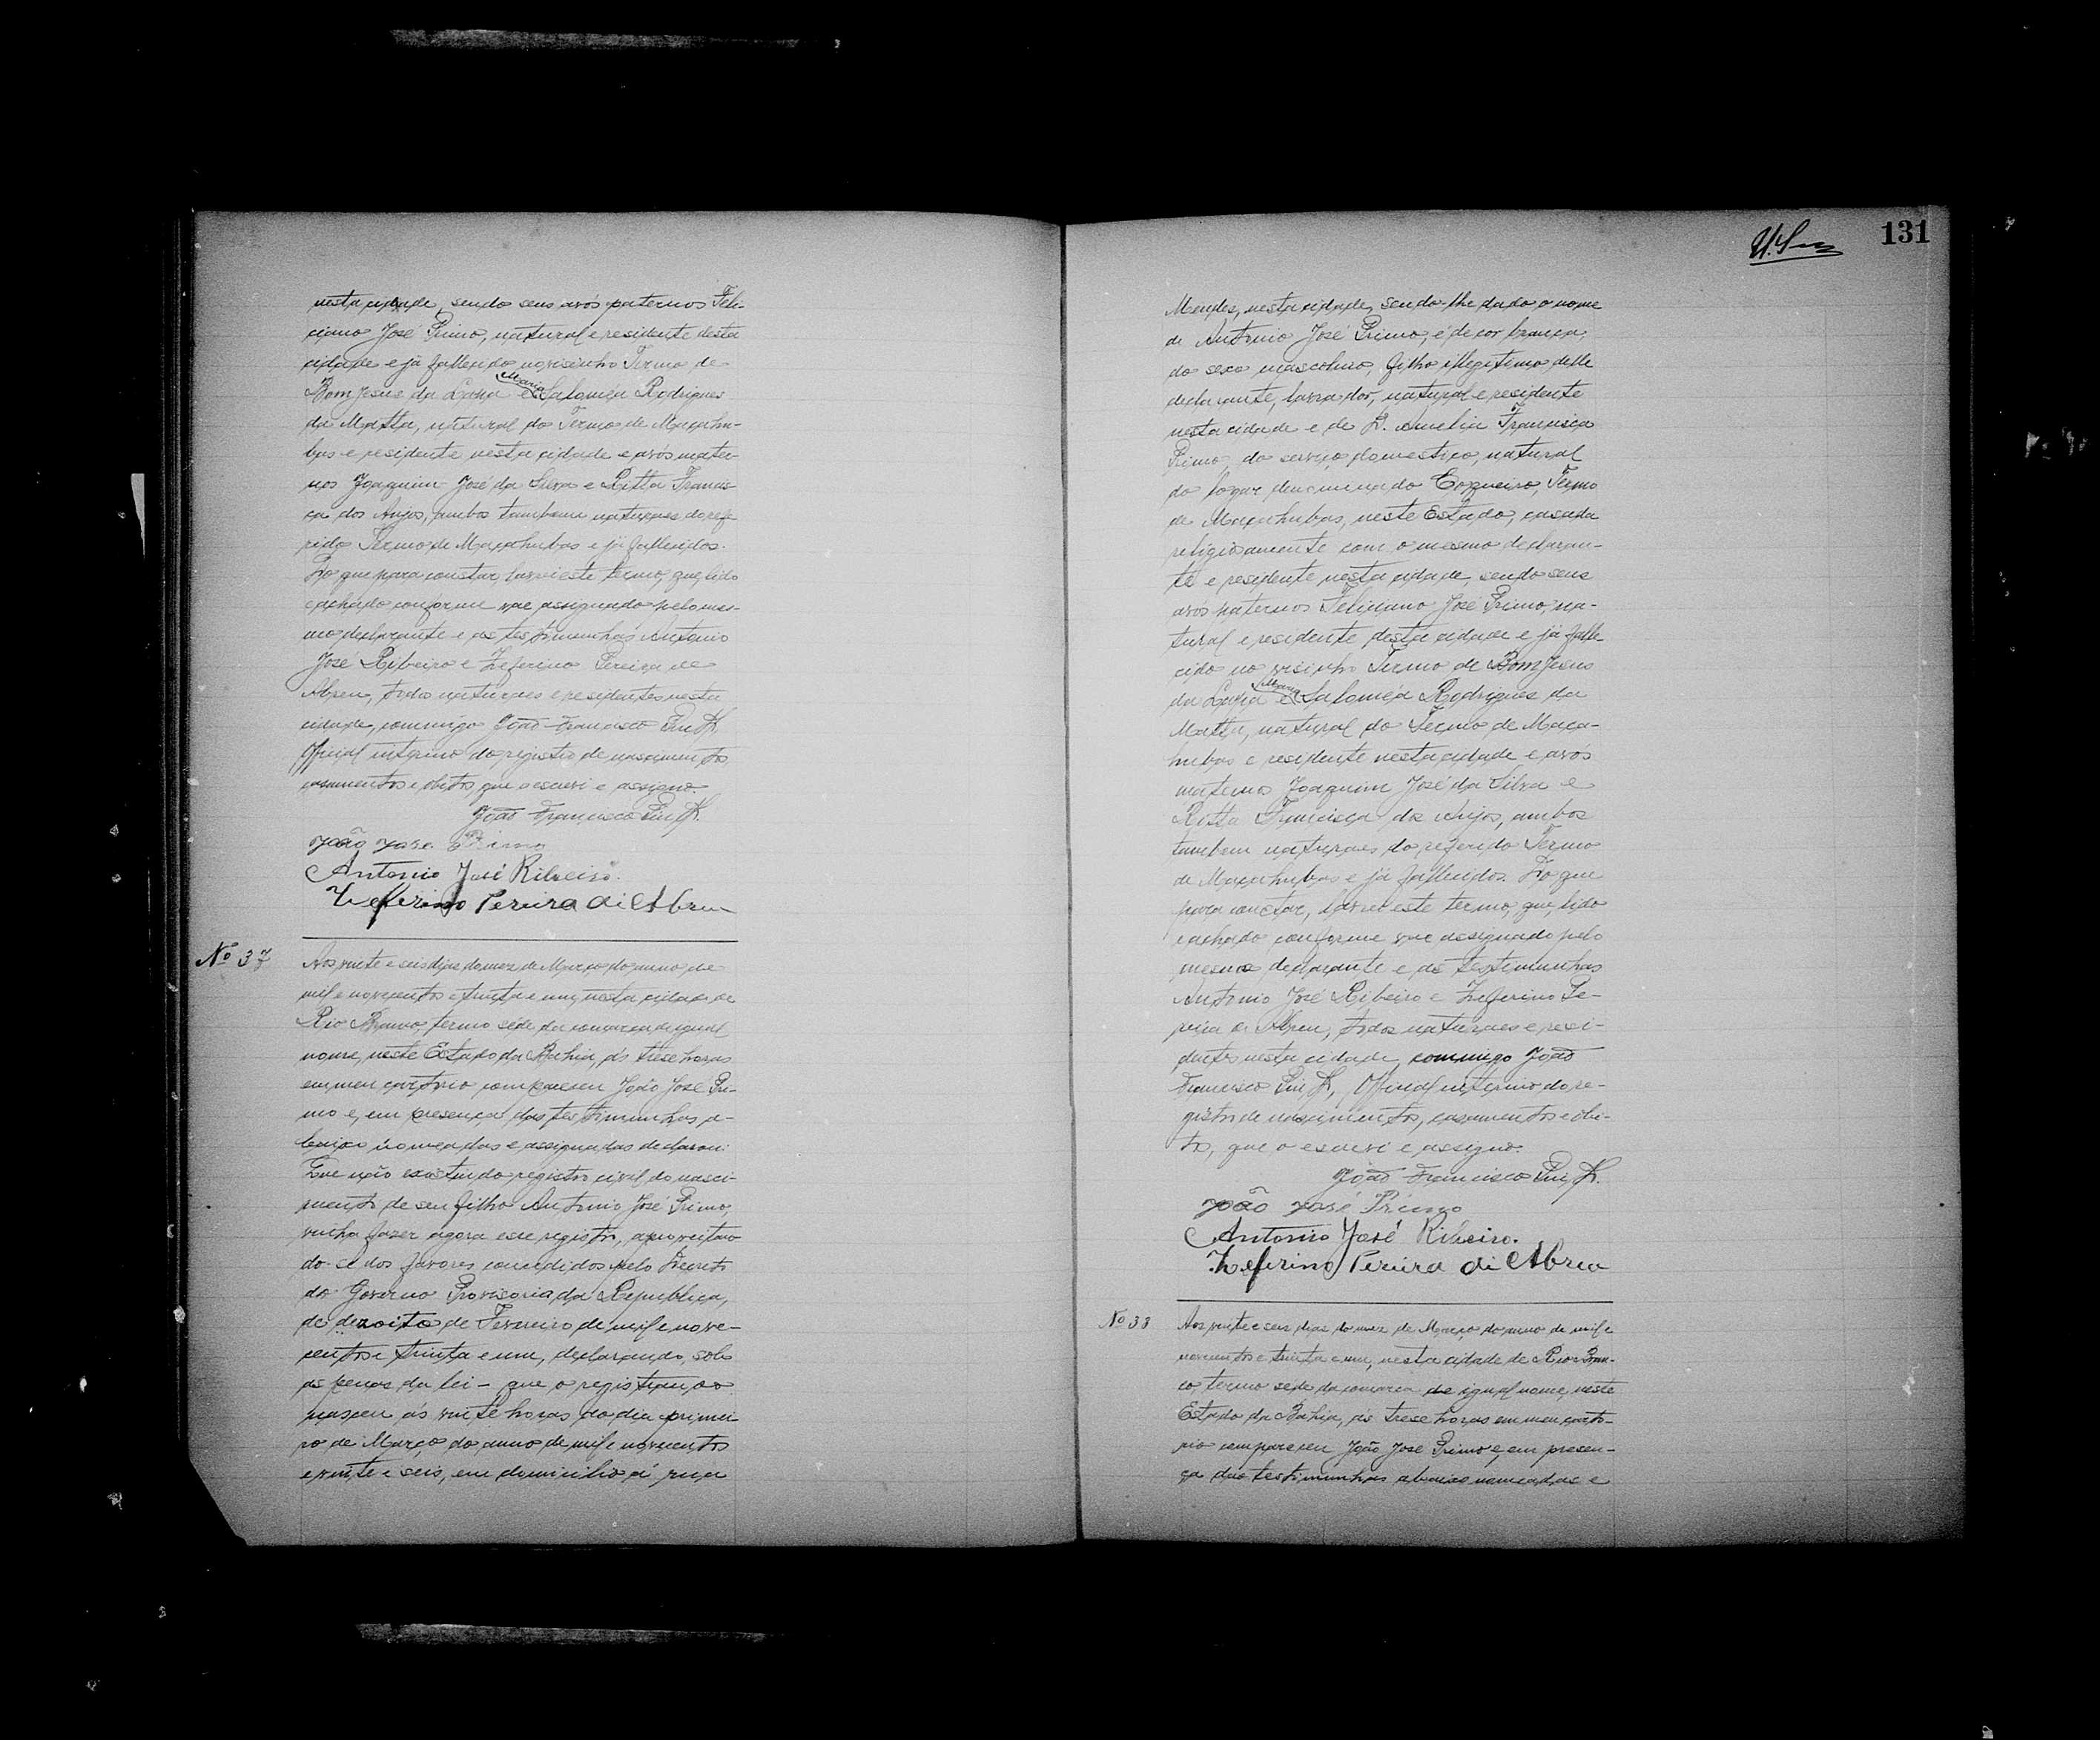 nesta cidade, sendo seus avós paternos Feli-
ciano José Primo, natural e residente desta
cidade e já fallecido no visinho Termo de
Bom Jesus da Lapa e Maria Saloméa Rodrigues
da Matta, natural do Termo de Macahu-
bas e residente nesta cidade e avós mater-
nos Joaquim José da Silva e Ritta Francis-
ca dos Anjos, ambos tambem naturaes do refe-
rido Termo de Macahubas e já fallecidos.
Do que para constar, lavrei este termo, que, lido
e achado conforme vae assignado pelo mes-
mo declarante e as testimunhas Antonio
José Ribeiro e Zeferino Pereira de
Abreu, todos naturaes e residentes nesta
cidade, commigo João Francisco
Official interino do registro de nascimentos
casamentos e obitos, que o escrevi e assigno.
João Francisco
João José Primo
Antonio José Ribeiro.
Zefferino Pereira di Abreu
Nº 37
Aos vinte e seis dias do mez de Março do anno de
mil e novecentos e trinta e um, nesta cidade de
Rio Branco, termo séde da comarca de igual
nome, neste Estado da Bahia, ás trese horas
em meu cartorio compareceu João José Pri-
mo e, em presença das testimunhas a-
baixo nomeadas e assignadas declarou:
Que não existindo registro civil do nasci-
mento de seu filho Antonio José Primo,
vinha fazer agora esse registro, aproveitan-
do-se dos favores concedidos pelo Decreto
do Governo Provisorio da Republica,
de dezoito de Fevereiro de mil e nove-
centos e trinta e um, declarando, sob
as penas da lei - que o registrando
nasceu ás vinte horas do dia primei-
ro de Março do anno de mil e novecentos
e vinte e seis, em domicilio á rua
131
Mendes, nesta cidade, sendo-lhe dado o nome
de Antonio José Primo, é de cor branca,
do sexo mascolino, filho illegitimo delle
declarante, lavrador, natural e residente
nesta cidade e de D. Amelia Francisca
Primo, do serviço domestico, natural
do logar denominado Coqueiro, Termo
de Macahubas, neste Estado, casada
religiosamente com o mesmo declaran-
te e residente nesta cidade, sendo seus
avós paternos Feliciano José Primo, na-
tural e residente desta cidade e já falle-
cido no visinho Termo de Bom Jesus
da Lapa e Maria Saloméa Rodrigues da
Matta, natural do Termo de Maca-
hubas e residente nesta cidade e avós
maternos Joaquim José da Silva e
Ritta Francisca dos Anjos, ambos
tambem naturaes do referido Termo
de Macahubas e já fallecidos. Do que
para constar, lavrei este termo, que, lido
e achado conforme vae assignado pelo
mesmo declarante e as testimunhas
Antonio José Ribeiro e Zeferino Pe-
reira de Abreu, todos naturaes e resi-
dentes nesta cidade, commigo João
Francisco Official interino do re-
gistro de nascimentos, casamentos e obi-
tos, que o escrevi e assigno.
João Francisco
João José Primo
Antonio José Ribeiro.
Zeferino Pereira di Abreu
Nº 38
Aos vinte e seis dias do mez de Março do anno de mil e
novecentos e trinta e um, nesta cidade de Rio Bran-
co, termo séde da comarca de igual nome, neste
Estado da Bahia, ás trese horas em meu carto-
rio compareceu João José Primo e, em presen-
ça das testimunhas abaixo nomeadas e